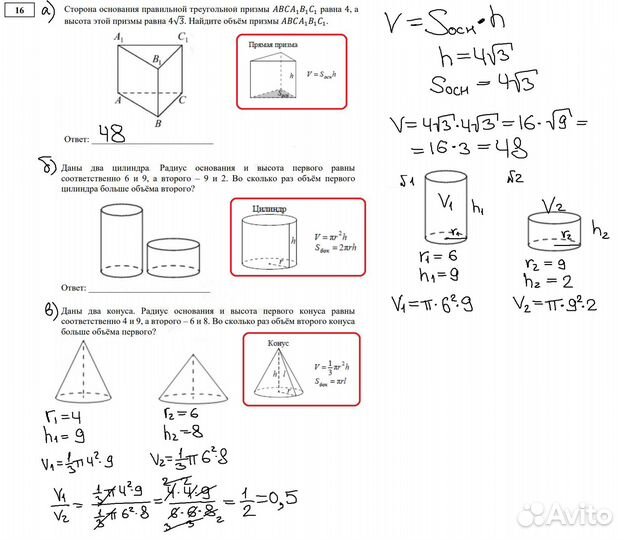 16
а)
Сторона основания правильной треугольной призмы ABCA₁B₁C₁ равна 4, а
высота этой призмы равна 4√3. Найдите объём призмы ABCA₁B₁C₁.
A₁ C₁
B₁
A C
B
Прямая призма
h
V = Sоснh
Sосн
Ответ: 48
V = Sосн · h
h = 4√3
Sосн = 4√3
V = 4√3 · 4√3 = 16 · √9 =
= 16 · 3 = 48
б)
Даны два цилиндра. Радиус основания и высота первого равны
соответственно 6 и 9, а второго – 9 и 2. Во сколько раз объём первого
цилиндра больше объёма второго?
Цилиндр
h
r
V = πr²h
Sбок = 2πrh
Ответ:
№1
V₁
h₁
r₁
r₁ = 6
h₁ = 9
V₁ = π · 6² · 9
№2
V₂
h₂
r₂
r₂ = 9
h₂ = 2
V₂ = π · 9² · 2
в)
Даны два конуса. Радиус основания и высота первого конуса равны
соответственно 4 и 9, а второго – 6 и 8. Во сколько раз объём второго конуса
больше объёма первого?
Конус
h
l
r
V = 1/3 πr²h
Sбок = πrl
r₁ = 4
h₁ = 9
V₁ = 1/3 π 4² · 9
r₂ = 6
h₂ = 8
V₂ = 1/3 π 6² · 8
V₁/V₂ = (1/3 π 4² · 9)/(1/3 π 6² · 8) = (4 · 4 · 9)/(6 · 6 · 8) = 1/2 = 0,5
2 2
3 3 2
Avito